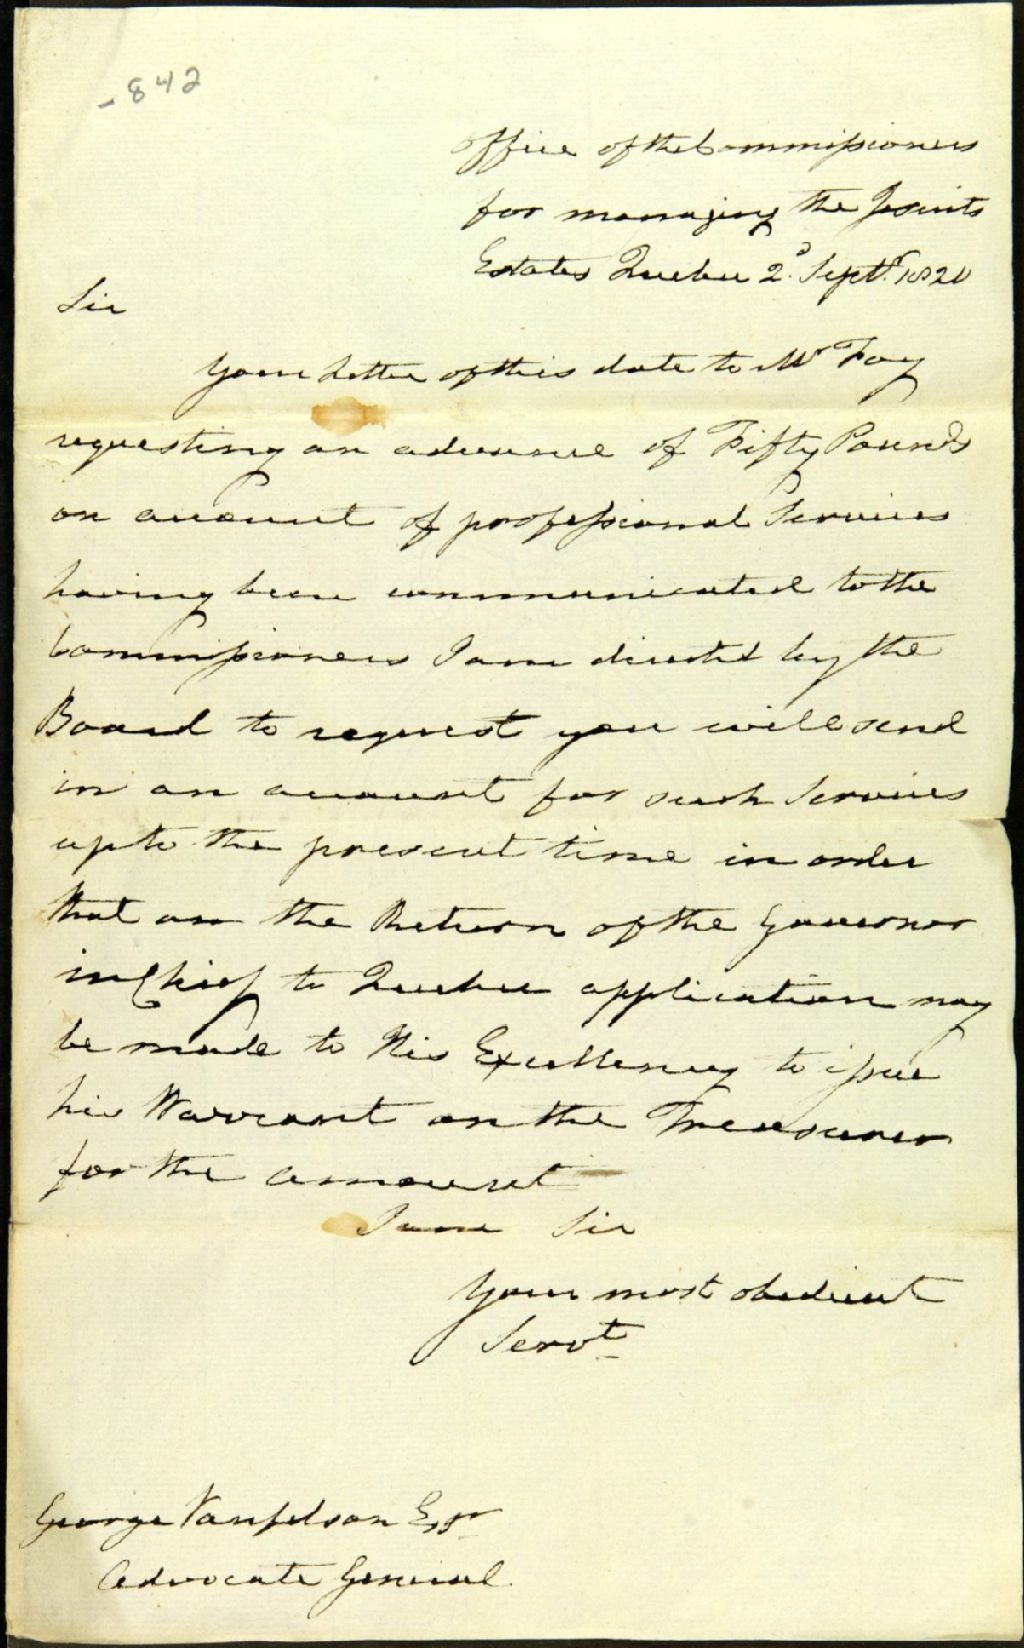 -842
Office of the Commissioners
for managing the Jesuits
Estates Quebec 2d. Septr. 1820
Sir
Your Letter of this date to Mr Foy
requesting an advance of Fifty Pounds
on account of professional Services
having been communicated to the
Commissioners I am directed by the
Board to request you will send
in an account for such Services
up to the present time in order
that on the Return of the Governor
in Chief to Quebec application may
be made to His Excellency to issue
his Warrant on the Treasurer
for the amount
I am Sir
Your most obedient
Servt
George Vanfelson Esqr
Advocate General